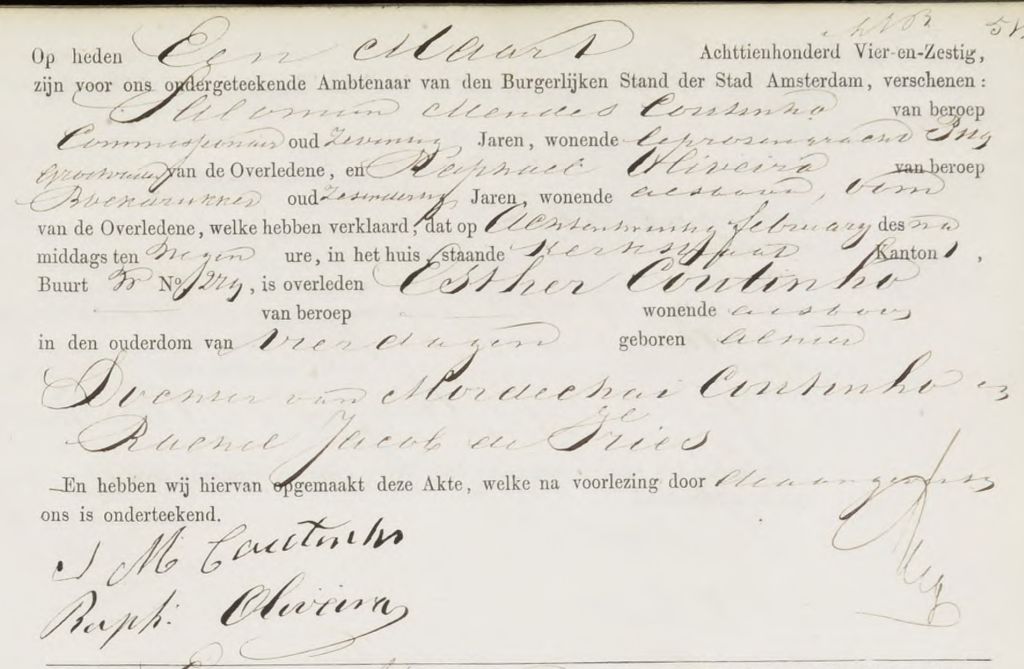 Op heden Een Maart Achttienhonderd Vier-en-Zestig,
zijn voor ons ondergeteekende Ambtenaar van den Burgerlijken Stand der Stad Amsterdam, verschenen:
Salomon Mendes Coutinho van beroep
Commissionair oud Zeventig Jaren, wonende Leprosengracht
Grootvader van de Overledene, en Raphael Oliveira van beroep
Boekdrukker oud Jaren, wonende aldaar, Oom
van de Overledene, welke hebben verklaard, dat op Achtentwintig february des na
middags ten Negen ure, in het huis staande Kerkstraat Kanton 1,
Buurt No 279, is overleden Esther Coutinho
van beroep wonende aldaar
in den ouderdom van vier dagen geboren alhier
Dochter van Mordechai Coutinho en
Rachel Jacob de Vries
En hebben wij hiervan opgemaakt deze Akte, welke na voorlezing door de aangevers
ons is onderteekend.
S M Coutinho
Raph: Oliveira